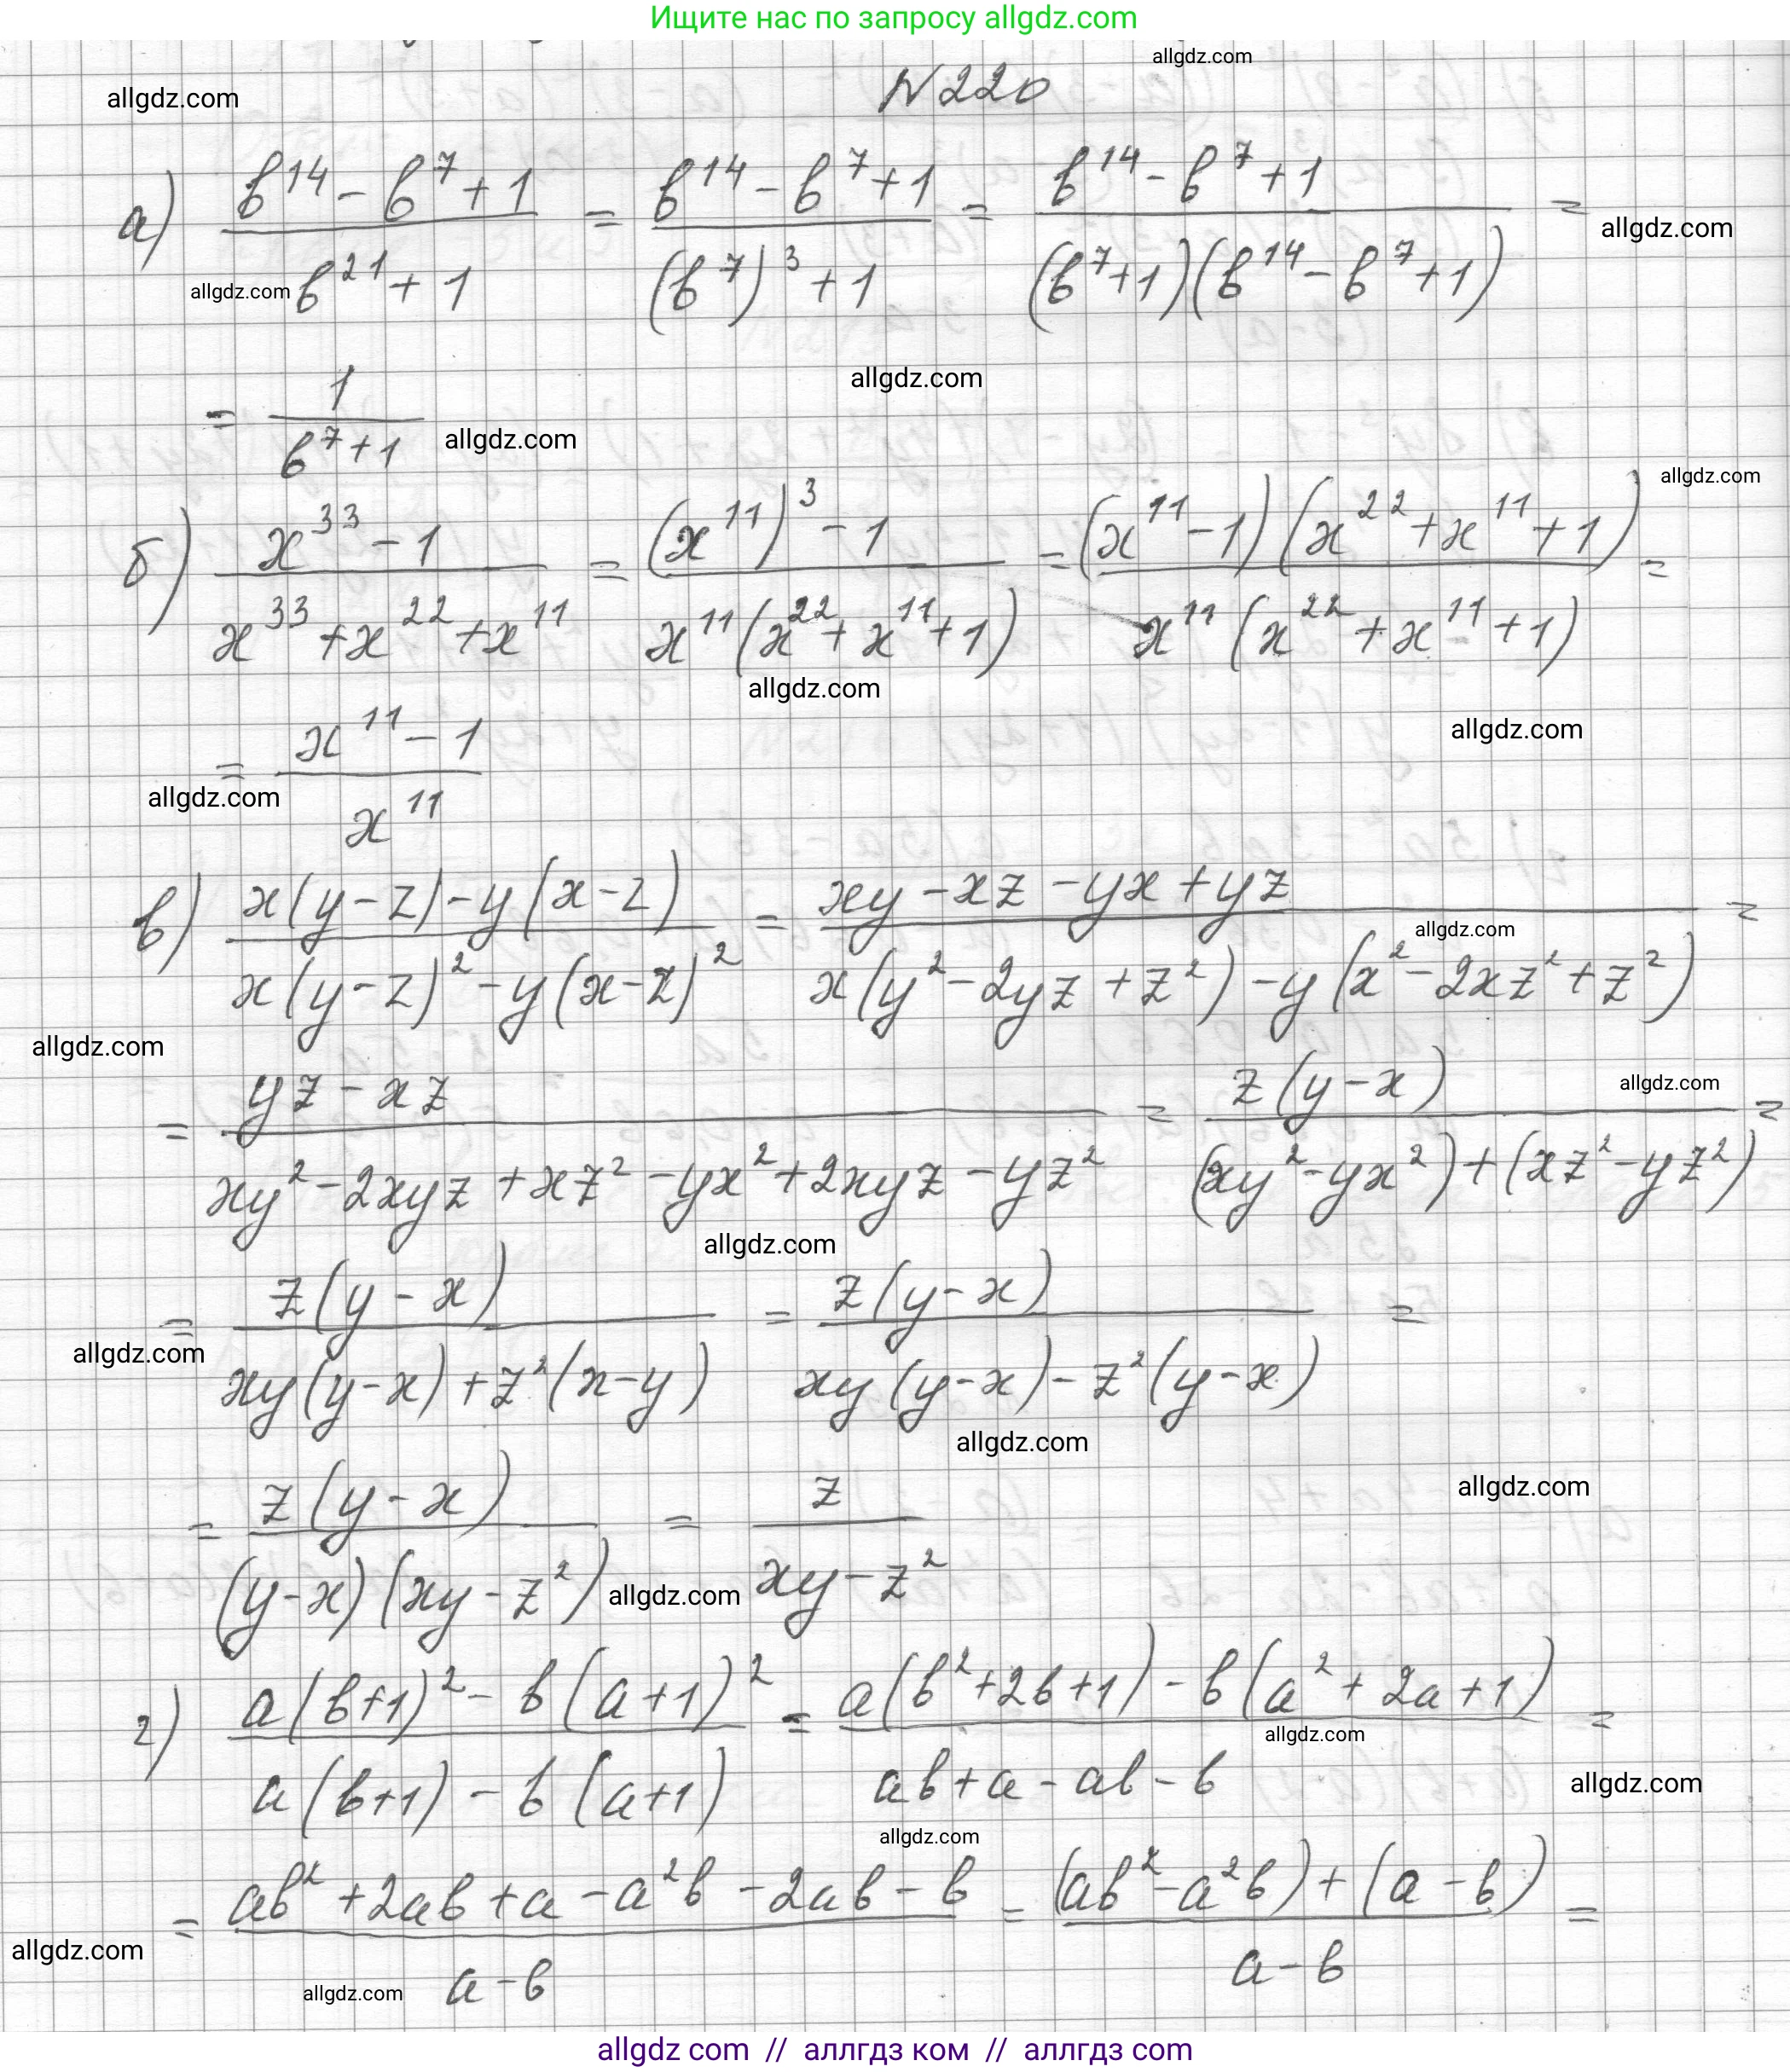 Ищите нас по запросу allgdz.com
allgdz.com
allgdz.com
N220
а) (b^14 - b^7 + 1)/(b^21 + 1) = (b^14 - b^7 + 1)/((b^7)^3 + 1) = (b^14 - b^7 + 1)/((b^7+1)(b^14 - b^7 + 1)) =
allgdz.com
allgdz.com
allgdz.com
= 1/(b^7+1)
allgdz.com
allgdz.com
б) (x^33 - 1)/(x^33 + x^22 + x^11) = ((x^11)^3 - 1)/(x^11(x^22 + x^11 + 1)) = ((x^11 - 1)(x^22 + x^11 + 1))/(x^11(x^22 + x^11 + 1)) =
allgdz.com
allgdz.com
= (x^11 - 1)/x^11
allgdz.com
в) (x(y-z) - y(x-z))/(x(y-z)^2 - y(x-z)^2) = (xy - xz - yx + yz)/(x(y^2 - 2yz + z^2) - y(x^2 - 2xz^2 + z^2)) =
allgdz.com
allgdz.com
allgdz.com
= (yz - xz)/(xy^2 - 2xyz + xz^2 - yx^2 + 2xyz - yz^2) = (z(y-x))/((xy^2 - yx^2) + (xz^2 - yz^2)) =
allgdz.com
= (z(y-x))/(xy(y-x) + z^2(x-y)) = (z(y-x))/(xy(y-x) - z^2(y-x)) =
allgdz.com
allgdz.com
allgdz.com
= (z(y-x))/((y-x)(xy - z^2)) = z/(xy - z^2)
allgdz.com
г) (a(b+1)^2 - b(a+1)^2)/(a(b+1) - b(a+1)) = (a(b^2+2b+1) - b(a^2+2a+1))/(ab+a-ab-b) =
allgdz.com
allgdz.com
allgdz.com
= (ab^2 + 2ab + a - a^2b - 2ab - b)/(a-b) = ((ab^2 - a^2b) + (a-b))/(a-b) =
allgdz.com
allgdz.com
allgdz com // аллгдз ком // аллгдз com